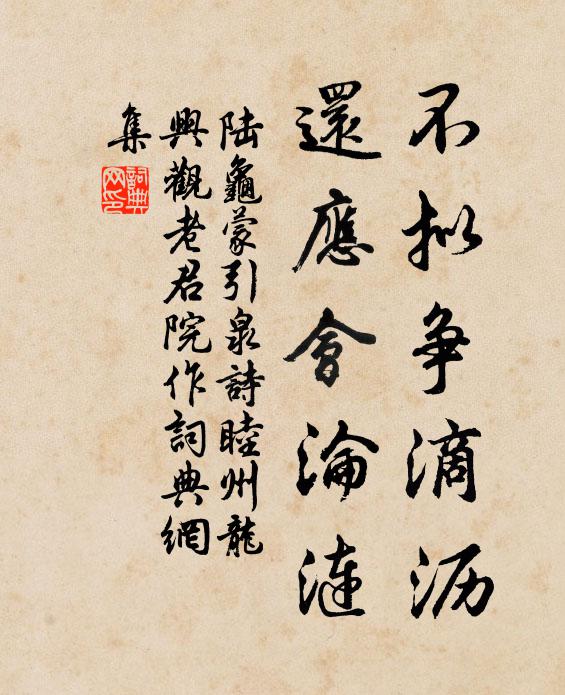 不拟争滴沥
還應會淪漣
陆龜蒙引泉詩睦州龍
興觀老君院作詞典網
集
詞典網印